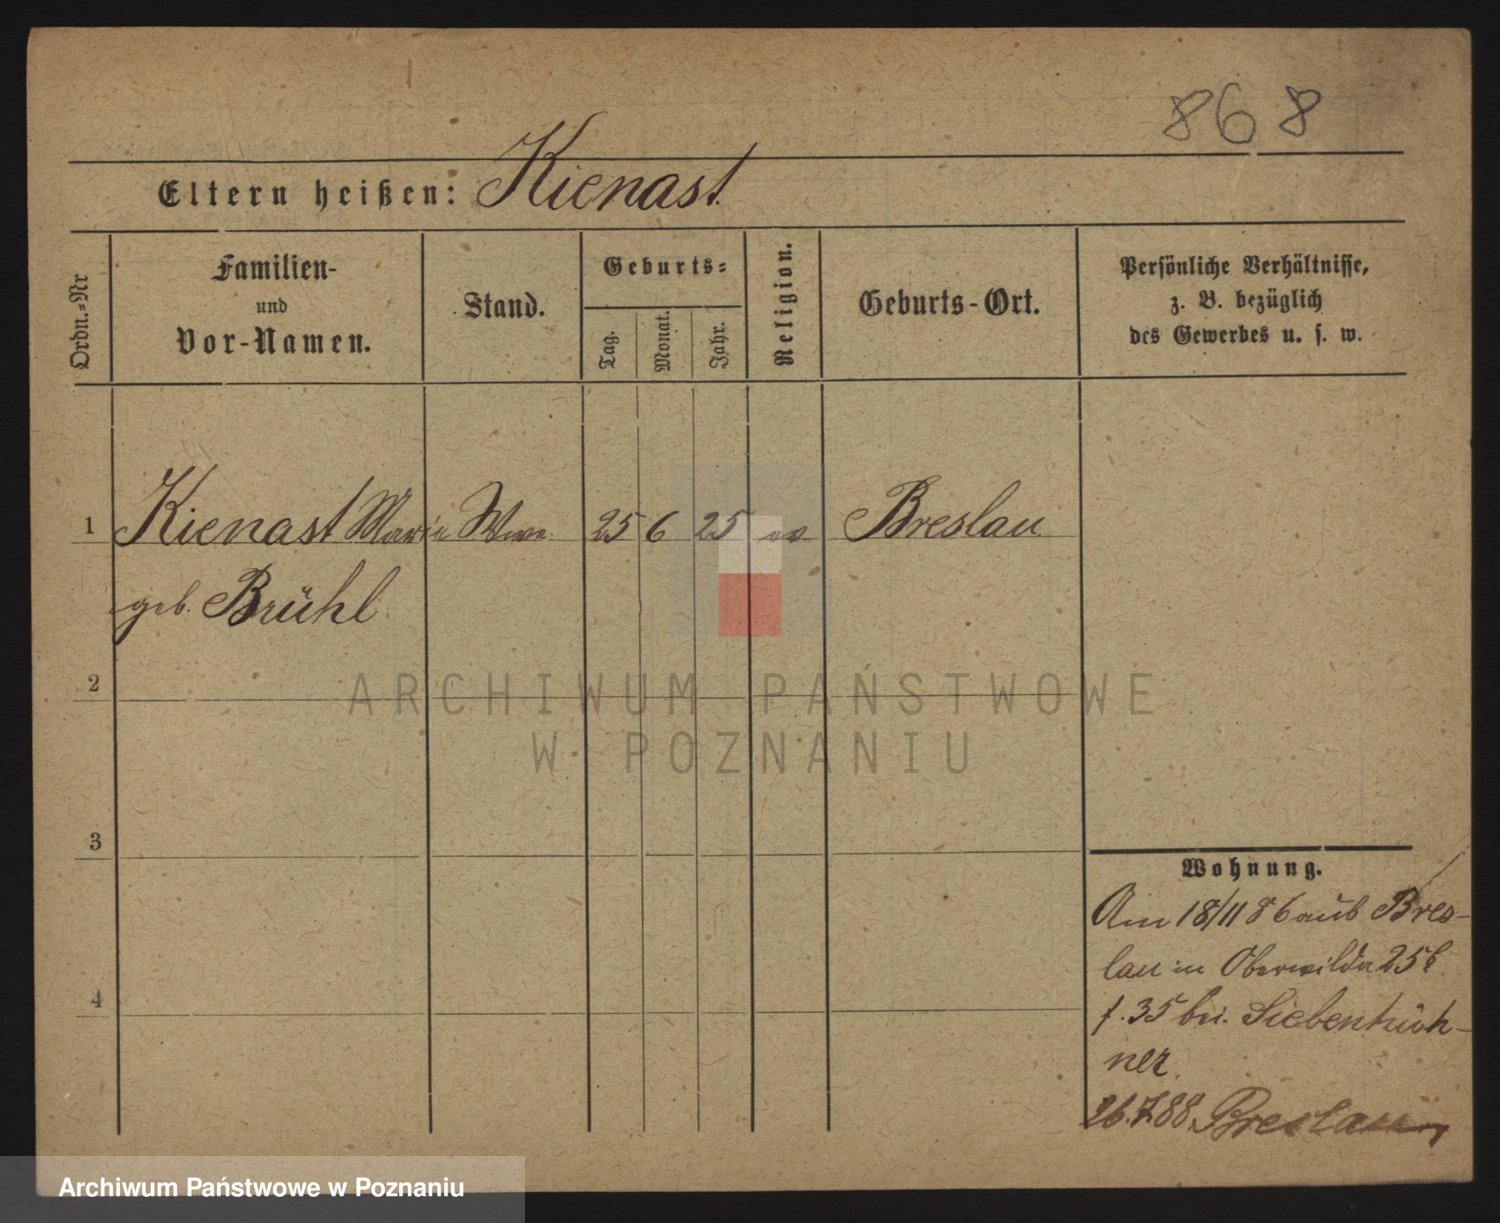 868
Eltern heißen: Kienast
Ordn.-Nr
Familien-
und
Vor-Namen.
Stand.
Geburts-
Tag.
Monat.
Jahr.
Religion.
Geburts-Ort.
Persönliche Verhältnisse,
z. B. bezüglich
des Gewerbes u. s. w.
1 Kienast Marie Wwe. 25 6 25 ev Breslau
geb. Brühl
2
3
4
ARCHIWUM PAŃSTWOWE
W POZNANIU
Wohnung.
Am 18/11 86 aus Bres-
lau in Oberwilda 25b
f. 35 bei Siebentrich-
ner.
26.7.88. Breslau
Archiwum Państwowe w Poznaniu